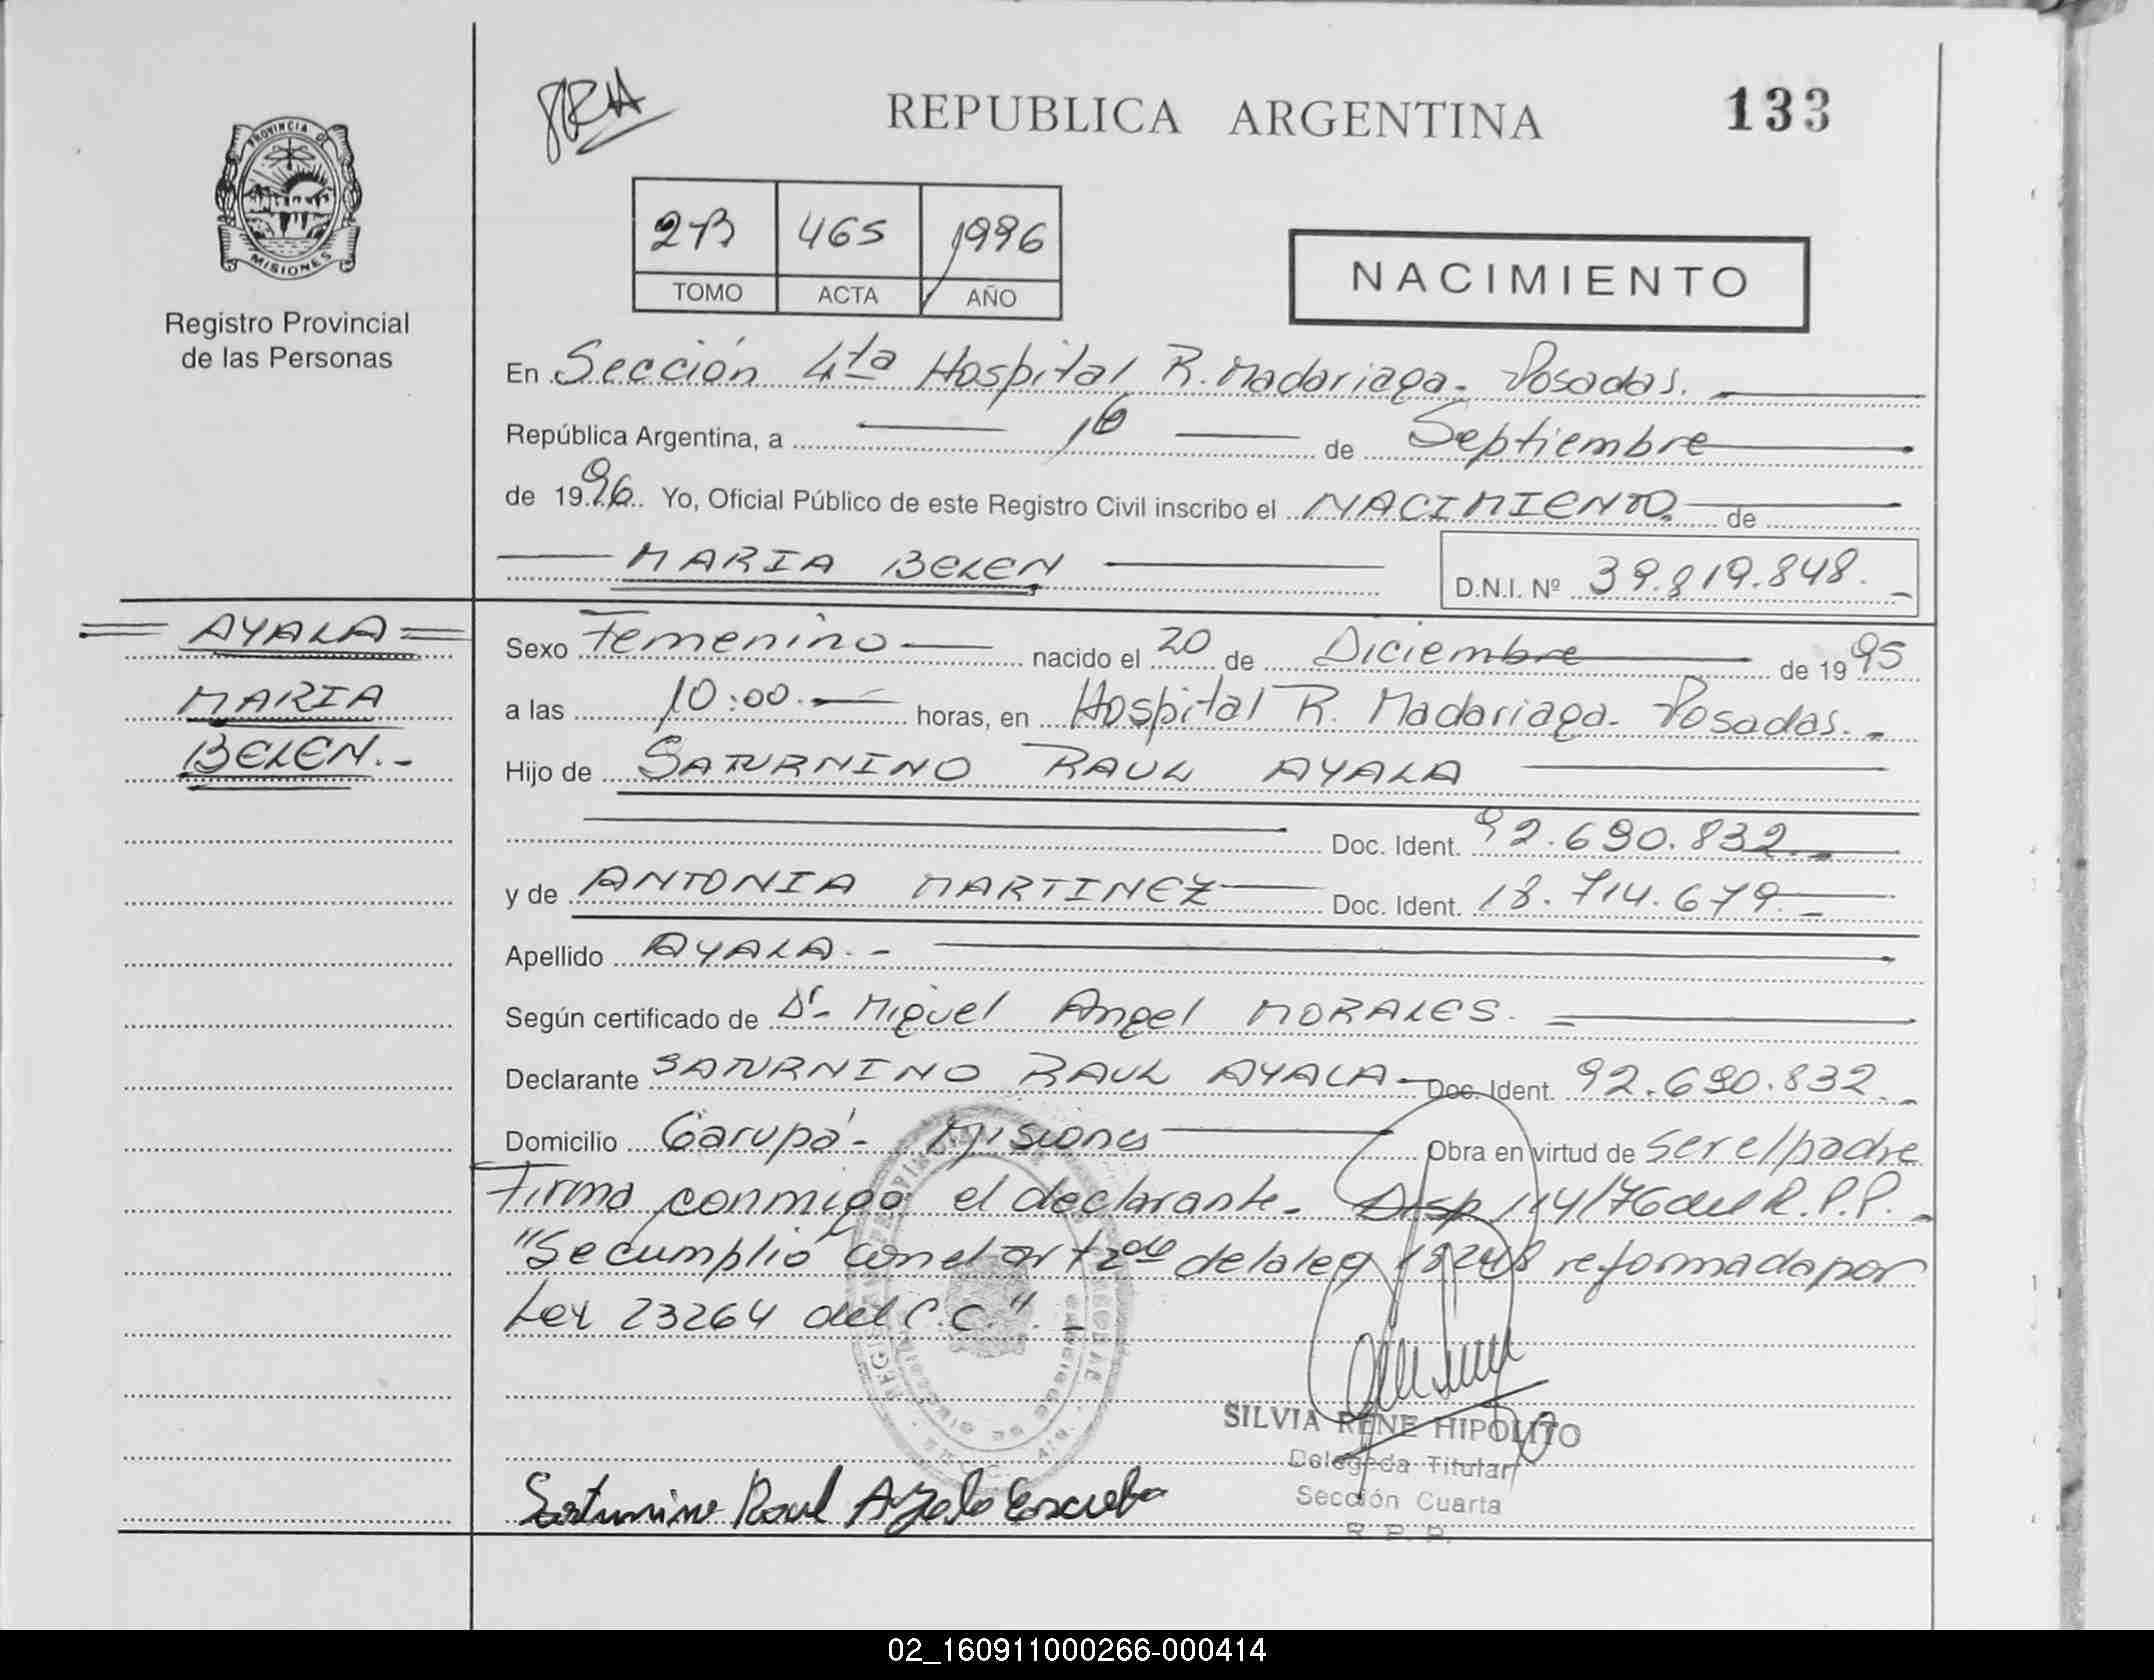 REPUBLICA ARGENTINA
133
PROVINCIA DE
MISIONES
Registro Provincial
de las Personas
2B 465 1996
TOMO ACTA AÑO
NACIMIENTO
En Sección 4ta Hospital R. Madariaga - Posadas.
República Argentina, a 16 de Septiembre
de 1996. Yo, Oficial Público de este Registro Civil inscribo el NACIMIENTO de
MARIA BELEN D.N.I. Nº 39.819.848.
AYALA
MARIA
BELEN.-
Sexo Femenino nacido el 20 de Diciembre de 1995
a las 10:00.- horas, en Hospital R. Madariaga - Posadas.-
Hijo de SATURNINO RAUL AYALA
Doc. Ident. 92.690.832.-
y de ANTONIA MARTINEZ Doc. Ident. 18.714.679.-
Apellido AYALA.-
Según certificado de Dr. Miguel Angel MORALES.
Declarante SATURNINO RAUL AYALA - Doc. Ident. 92.690.832.-
Domicilio Garupá - Misiones Obra en virtud de ser el padre
Firma conmigo el declarante. Disp 114/76 del R.P.P.-
"Se cumplió con el art 2do de la ley 18248 reformada por
Ley 23264 del C.C.".-
SILVIA RENE HIPOLITO
Delegada Titular
Sección Cuarta
R. P. P.
Saturnino Raul Ayala Escueba
02_160911000266-000414